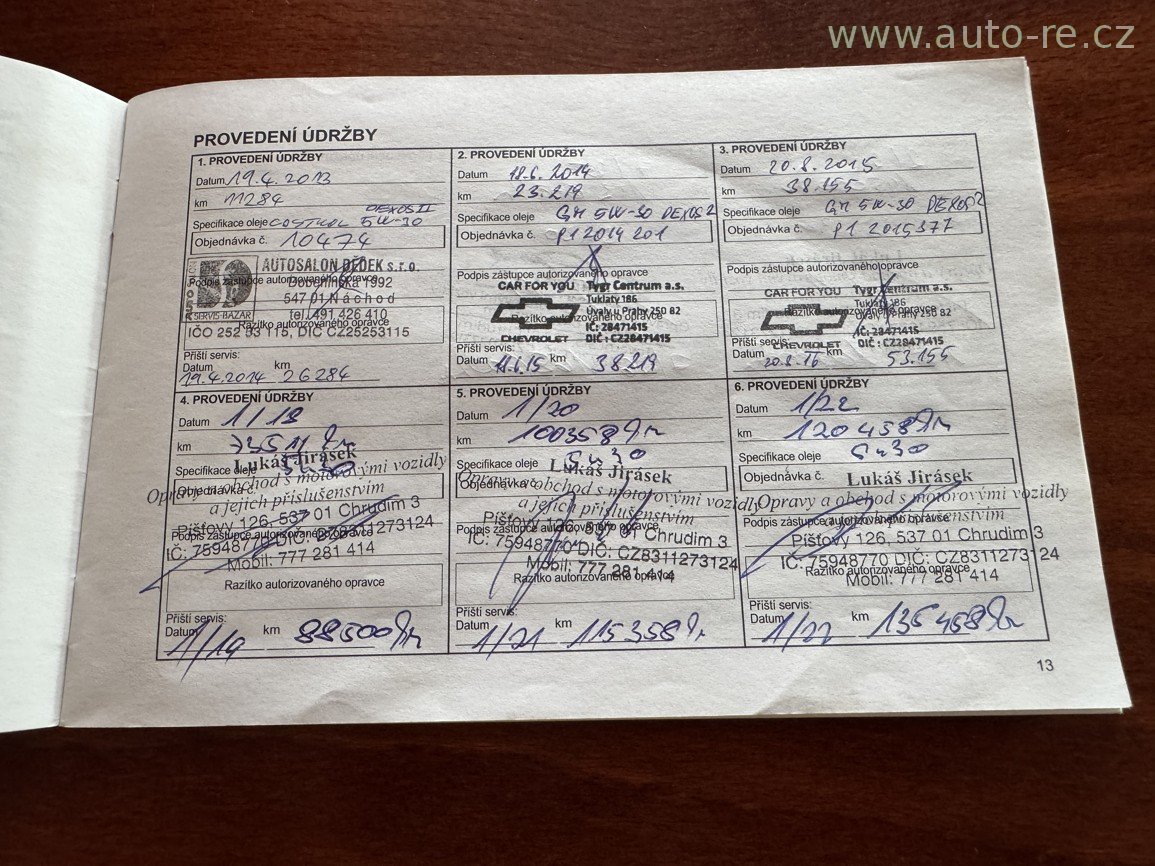 www.auto-re.cz
PROVEDENÍ ÚDRŽBY
1. PROVEDENÍ ÚDRŽBY
Datum 19.4.2013
km 11284
DEXOS II
Specifikace oleje CASTROL 5W-30
Objednávka č. 10474
AUTOSALON DĚDEK s.r.o.
Podpis zástupce autorizovaného opravce
Dobenínská 1992
547 01 Náchod
tel. 491 426 410
SERVIS-BAZAR
Razítko autorizovaného opravce
IČO 252 53 115, DIČ CZ25253115
Příští servis:
Datum km
19.4.2014 26284
2. PROVEDENÍ ÚDRŽBY
Datum 18.6.2014
km 23.219
Specifikace oleje GM 5W-30 DEXOS 2
Objednávka č. P1 2014 201
Podpis zástupce autorizovaného opravce
CAR FOR YOU Tygr Centrum a.s.
Tuklaty 186
Razítko autorizovaného opravce
Úvaly u Prahy 250 82
IČ: 28471415
CHEVROLET DIČ: CZ28471415
Příští servis:
Datum 18.6.15 km 38219
3. PROVEDENÍ ÚDRŽBY
Datum 20.8.2015
km 38.155
Specifikace oleje GM 5W-30 DEXOS 2
Objednávka č. P1 2015377
Podpis zástupce autorizovaného opravce
CAR FOR YOU Tygr Centrum a.s.
Tuklaty 186
Razítko autorizovaného opravce
Úvaly u Prahy 250 82
IČ: 28471415
CHEVROLET DIČ: CZ28471415
Příští servis:
Datum 20.8.16 km 53.155
4. PROVEDENÍ ÚDRŽBY
Datum 1/18
km
Lukáš Jirásek
Specifikace oleje 5W30
Opravy a obchod s motorovými vozidly
Objednávka č.
a jejich příslušenstvím
Píšťovy 126, 537 01 Chrudim 3
Podpis zástupce autorizovaného opravce
IČ: 75948770 DIČ: CZ8311273124
Mobil: 777 281 414
Razítko autorizovaného opravce
Příští servis:
Datum 1/19 km 88500 km
5. PROVEDENÍ ÚDRŽBY
Datum 1/20
km 100358 km
Specifikace oleje 5W30
Lukáš Jirásek
Opravy a obchod s motorovými vozidly
Objednávka č.
a jejich příslušenstvím
Píšťovy 126, 537 01 Chrudim 3
Podpis zástupce autorizovaného opravce
IČ: 75948770 DIČ: CZ8311273124
Mobil: 777 281 414
Razítko autorizovaného opravce
Příští servis:
Datum 1/21 km 115358 km
6. PROVEDENÍ ÚDRŽBY
Datum 1/22
km 120458 km
Specifikace oleje 5W30
Objednávka č. Lukáš Jirásek
Opravy a obchod s motorovými vozidly
a jejich příslušenstvím
Podpis zástupce autorizovaného opravce
Píšťovy 126, 537 01 Chrudim 3
IČ: 75948770 DIČ: CZ8311273124
Razítko autorizovaného opravce
Mobil: 777 281 414
Příští servis:
Datum 1/22 km 135458 km
13